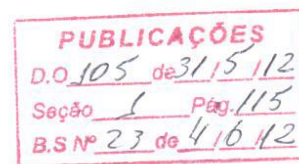 PUBLICAÇÕES
D.O 105 de 31/5/12
Seção 1 Pág. 115
B.S Nº 23 de 4/6/12